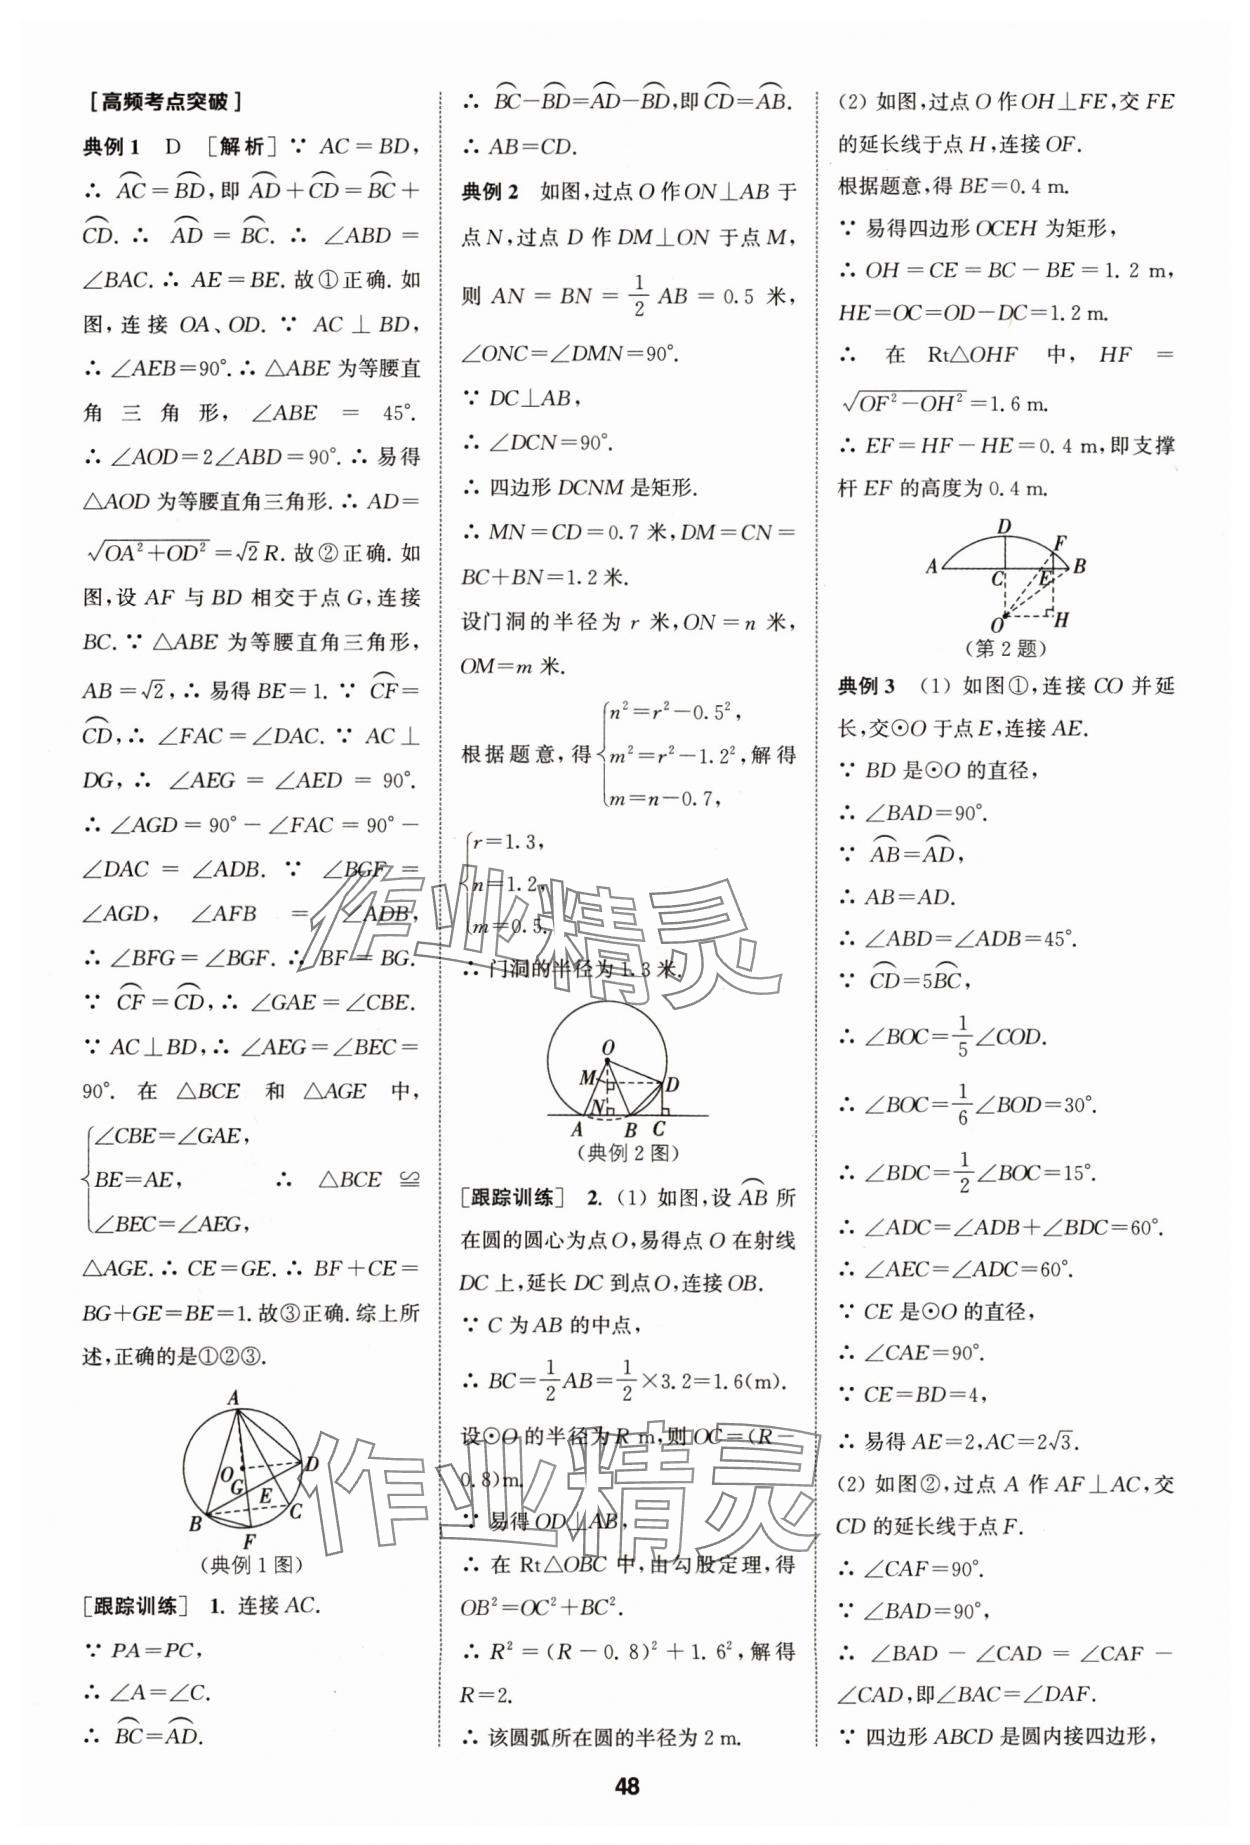 [高频考点突破]
典例1 D [解析] ∵ AC=BD,
∴ ⌒AC=⌒BD,即 ⌒AD+⌒CD=⌒BC+
⌒CD. ∴ ⌒AD=⌒BC. ∴ ∠ABD=
∠BAC. ∴ AE=BE. 故①正确. 如
图,连接 OA、OD. ∵ AC⊥BD,
∴ ∠AEB=90°. ∴ △ABE 为等腰直
角三角形, ∠ABE = 45°.
∴ ∠AOD=2∠ABD=90°. ∴ 易得
△AOD 为等腰直角三角形. ∴ AD=
√(OA²+OD²)=√2R. 故②正确. 如
图,设 AF 与 BD 相交于点 G,连接
BC. ∵ △ABE 为等腰直角三角形,
AB=√2, ∴ 易得 BE=1. ∵ ⌒CF=
⌒CD, ∴ ∠FAC=∠DAC. ∵ AC⊥
DG, ∴ ∠AEG=∠AED=90°.
∴ ∠AGD=90°-∠FAC=90°-
∠DAC=∠ADB. ∵ ∠BGF=
∠AGD, ∠AFB=∠ADB,
∴ ∠BFG=∠BGF. ∴ BF=BG.
∵ ⌒CF=⌒CD, ∴ ∠GAE=∠CBE.
∵ AC⊥BD, ∴ ∠AEG=∠BEC=
90°. 在 △BCE 和 △AGE 中,
{∠CBE=∠GAE,
BE=AE, ∴ △BCE≌
∠BEC=∠AEG,
△AGE. ∴ CE=GE. ∴ BF+CE=
BG+GE=BE=1. 故③正确. 综上所
述,正确的是①②③.
A
O
D
G
E
B
C
F
(典例1图)
[跟踪训练] 1. 连接 AC.
∵ PA=PC,
∴ ∠A=∠C.
∴ ⌒BC=⌒AD.
∴ ⌒BC-⌒BD=⌒AD-⌒BD,即⌒CD=⌒AB.
∴ AB=CD.
典例2 如图,过点 O 作 ON⊥AB 于
点 N,过点 D 作 DM⊥ON 于点 M,
则 AN=BN=1/2 AB=0.5 米,
∠ONC=∠DMN=90°.
∵ DC⊥AB,
∴ ∠DCN=90°.
∴ 四边形 DCNM 是矩形.
∴ MN=CD=0.7 米,DM=CN=
BC+BN=1.2 米.
设门洞的半径为 r 米,ON=n 米,
OM=m 米.
{n²=r²-0.5²,
根据题意,得 m²=r²-1.2²,解得
m=n-0.7,
{r=1.3,
n=1.2,
m=0.5.
∴ 门洞的半径为 1.3 米.
O
M
D
N
A
B
C
(典例2图)
[跟踪训练] 2. (1) 如图,设⌒AB 所
在圆的圆心为点 O,易得点 O 在射线
DC 上,延长 DC 到点 O,连接 OB.
∵ C 为 AB 的中点,
∴ BC=1/2 AB=1/2×3.2=1.6(m).
设⊙O 的半径为 R m,则 OC=(R-
0.8)m.
∵ 易得 OD⊥AB,
∴ 在 Rt△OBC 中,由勾股定理,得
OB²=OC²+BC².
∴ R²=(R-0.8)²+1.6²,解得
R=2.
∴ 该圆弧所在圆的半径为 2 m.
(2) 如图,过点 O 作 OH⊥FE,交 FE
的延长线于点 H,连接 OF.
根据题意,得 BE=0.4 m.
∵ 易得四边形 OCEH 为矩形,
∴ OH=CE=BC-BE=1.2 m,
HE=OC=OD-DC=1.2 m.
∴ 在 Rt△OHF 中, HF=
√(OF²-OH²)=1.6 m.
∴ EF=HF-HE=0.4 m,即支撑
杆 EF 的高度为 0.4 m.
D
F
A
C
E
B
O
H
(第2题)
典例3 (1) 如图①,连接 CO 并延
长,交⊙O 于点 E,连接 AE.
∵ BD 是⊙O 的直径,
∴ ∠BAD=90°.
∵ ⌒AB=⌒AD,
∴ AB=AD.
∴ ∠ABD=∠ADB=45°.
∵ ⌒CD=5⌒BC,
∴ ∠BOC=1/5∠COD.
∴ ∠BOC=1/6∠BOD=30°.
∴ ∠BDC=1/2∠BOC=15°.
∴ ∠ADC=∠ADB+∠BDC=60°.
∴ ∠AEC=∠ADC=60°.
∵ CE 是⊙O 的直径,
∴ ∠CAE=90°.
∵ CE=BD=4,
∴ 易得 AE=2,AC=2√3.
(2) 如图②,过点 A 作 AF⊥AC,交
CD 的延长线于点 F.
∴ ∠CAF=90°.
∵ ∠BAD=90°,
∴ ∠BAD-∠CAD=∠CAF-
∠CAD,即∠BAC=∠DAF.
∵ 四边形 ABCD 是圆内接四边形,
作业精灵
作业精灵
48